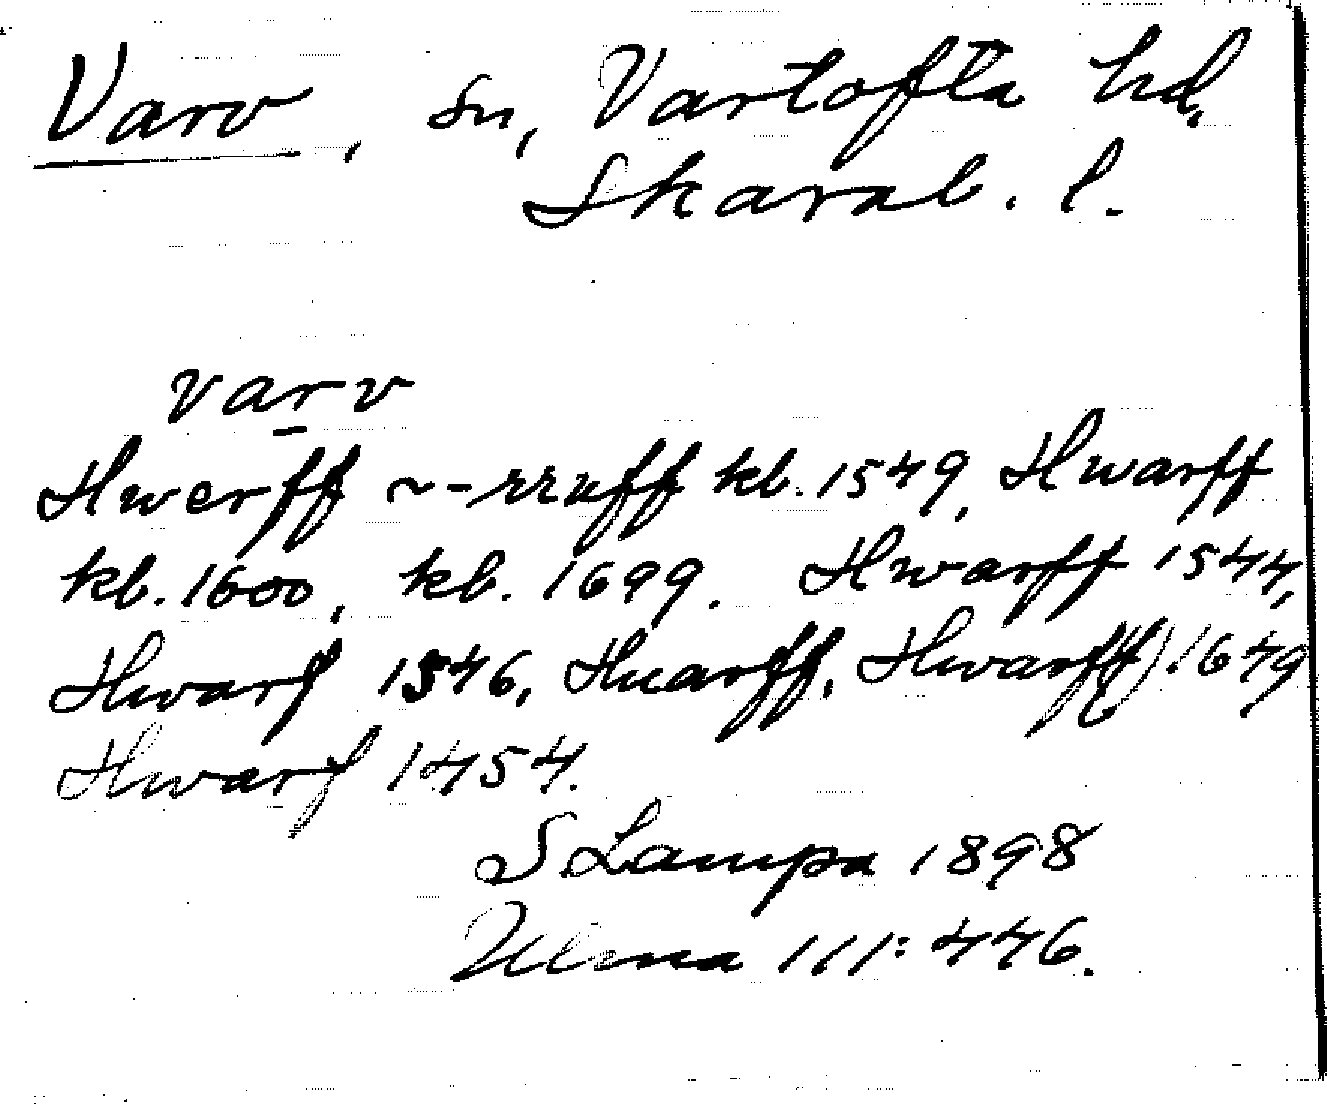 Varv, sn, Vartofta hd,
Skarab. l.
varv
Hwerff ~ -rruff kb. 1549, Hwarff
kb. 1600, kb. 1699. Hwarff 1544,
Hwarf 1546, Huarff, Hwarff(f) 1649
Hwarf 1454.
S Lampa 1898
Ulma 111:446.